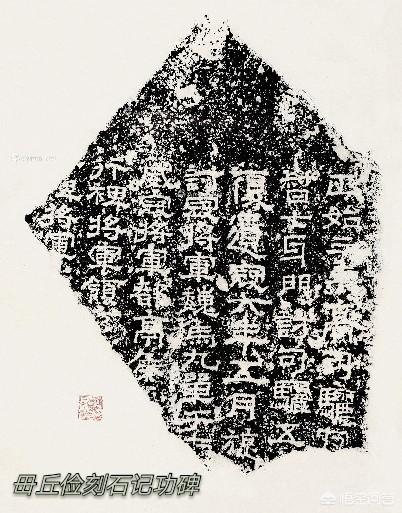 正始三年高句驪反
督七牙門討句驪五
復遣寇六年五月旋
討寇將軍魏烏丸單于
威寇將軍都亭侯
行裨將軍領
將軍
毌丘俭刻石记功碑
悟空问答